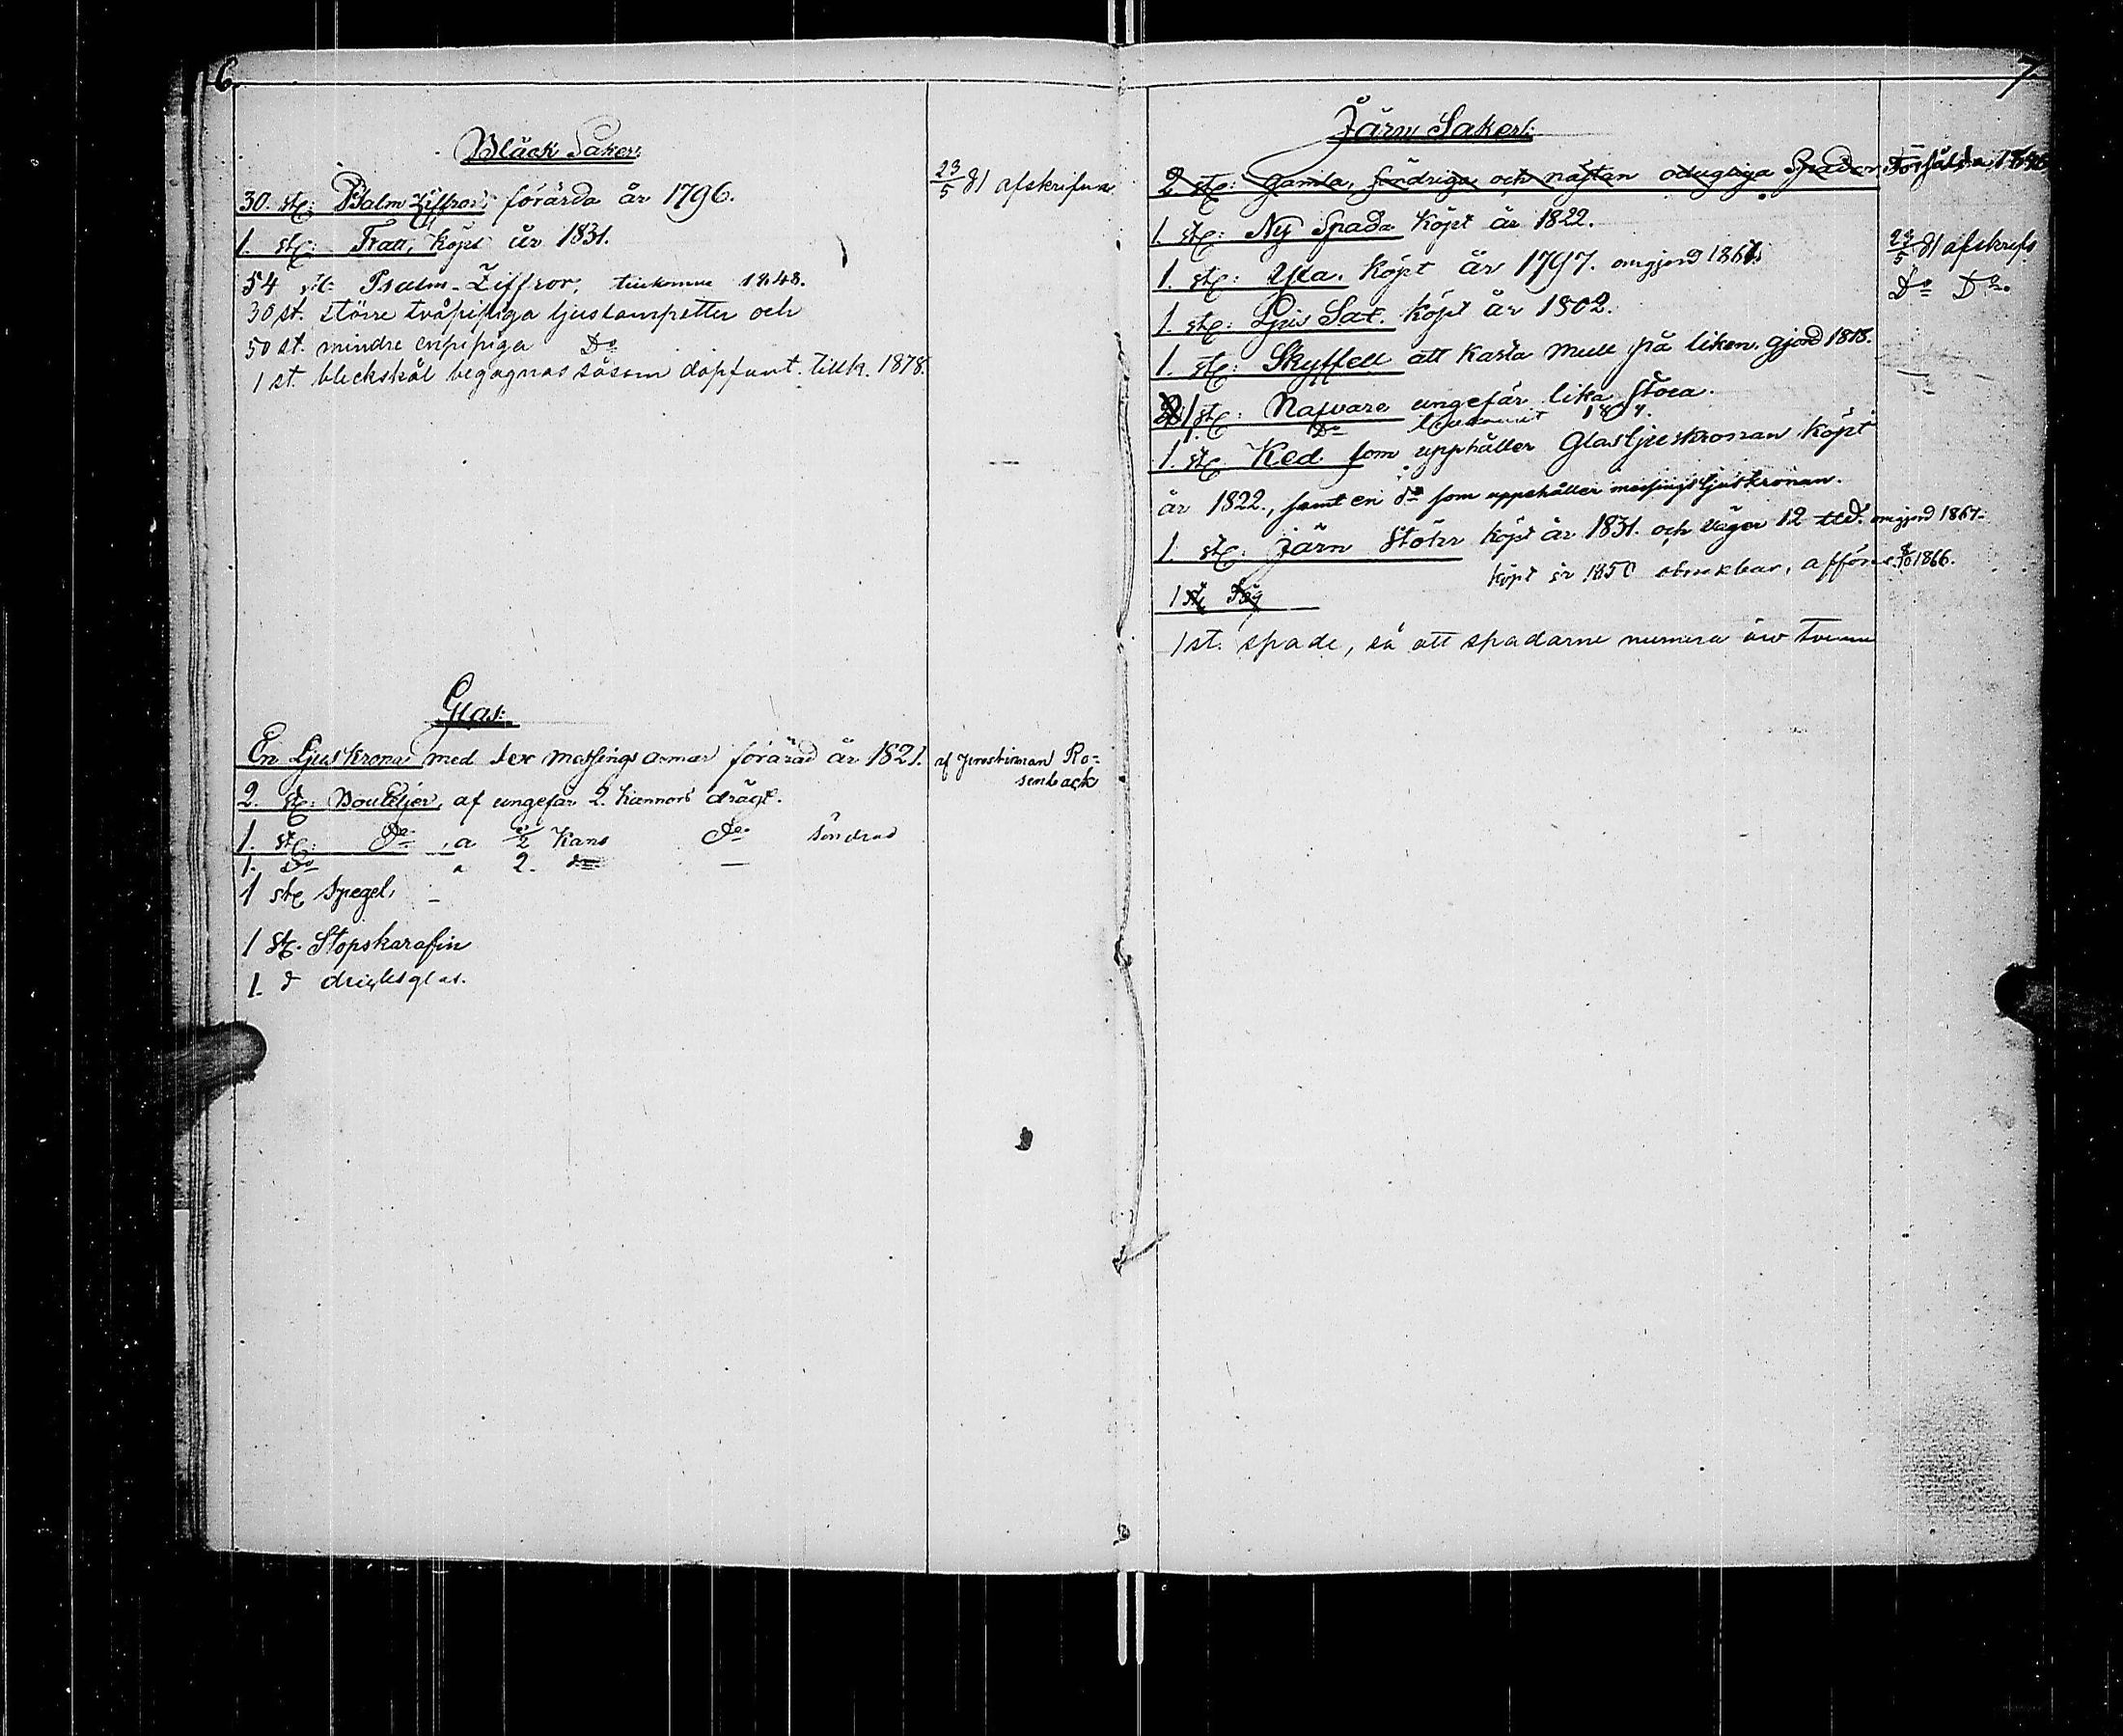 6.
Bläck Saker:
30. stc: Psalm Ziffror, förärda år 1796. 23/5 81 afskrifna
1. stc: Tratt, köpt år 1831.
54 st: Psalm-Ziffror, 1848.
30 st. större tvåpipiga ljuslampetter och
50 st. mindre enpipiga Do
1 st. bleckskål begagnas såsom dopfunt. Tillk. 1878.
Glas:
En Ljus Krona med sex Messings armar förärad år 1821. af Ro=
senback
2. stc: Bouteljer, af ungefär 2. Kannors drägt.
1. stc: do a 1/2 Kans do söndrad
1. Do a 2. do —
1 stc Spegel,
1 stc. Stopskarafin
1. d dricksglas.
7.
Järn Saker:
2 stc: gamla, söndriga och nästan odugliga Spador. Försålda
1. stc: Ny Spada köpt år 1822.
1. stc: Yxa. köpt år 1797. omgjord 1861. 23/5 81 afskrifs
1. stc: Ljus Sax. köpt år 1802. Do Do.
1. stc: Skyffell att kasta mull på liken. gjord 1818.
2 1 stc: Nafvare ungefär lika stora.
1. Do
1. stc Ked som upphåller Glasljuskronan köpt
år 1822., samt en do som uppehåller messingsljuskronan.
1. stc. järn Stöhr köpt år 1831. och väger 12 omgjord 1867.
köpt år 1850 1866.
1 stc Såg
1 st. spade, så att spadarne numera äro tvenne